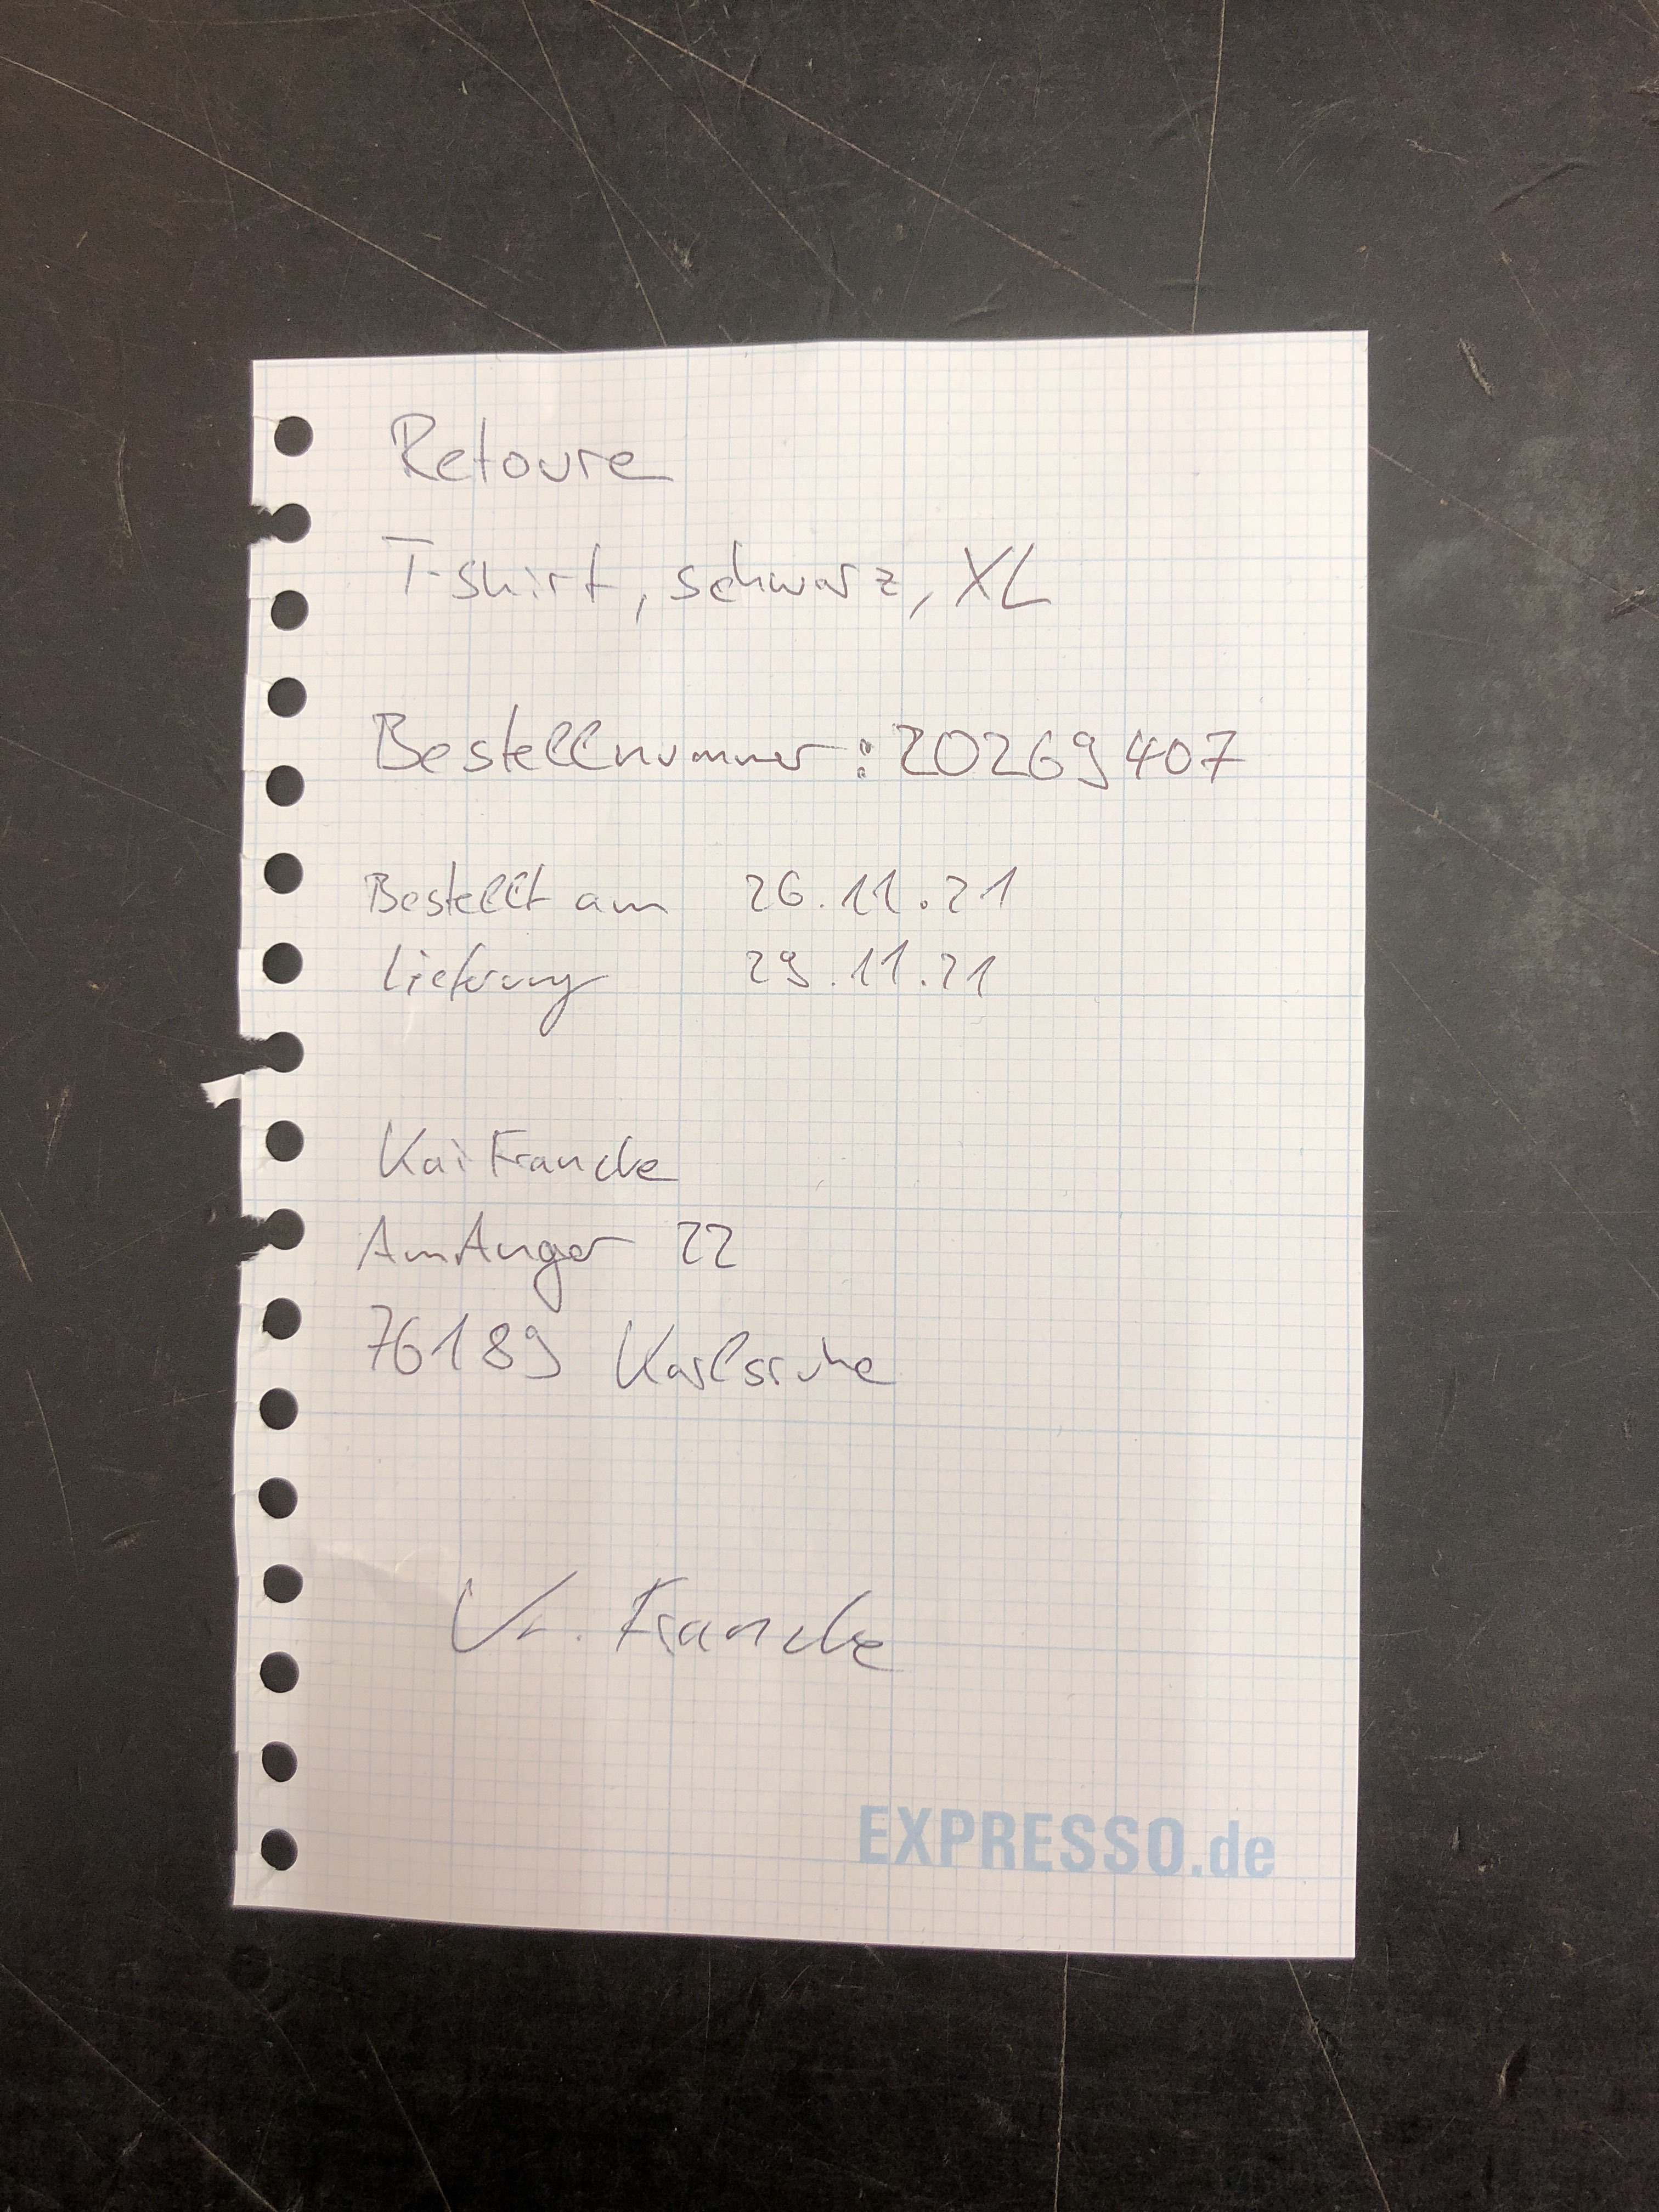 Retoure
T-Shirt, schwarz, XL
Bestellnummer: 20269407
Bestellt am 26.11.21
Lieferung 29.11.21
Kai Francke
Am Anger 22
76189 Karlsruhe
K. Francke
EXPRESSO.de